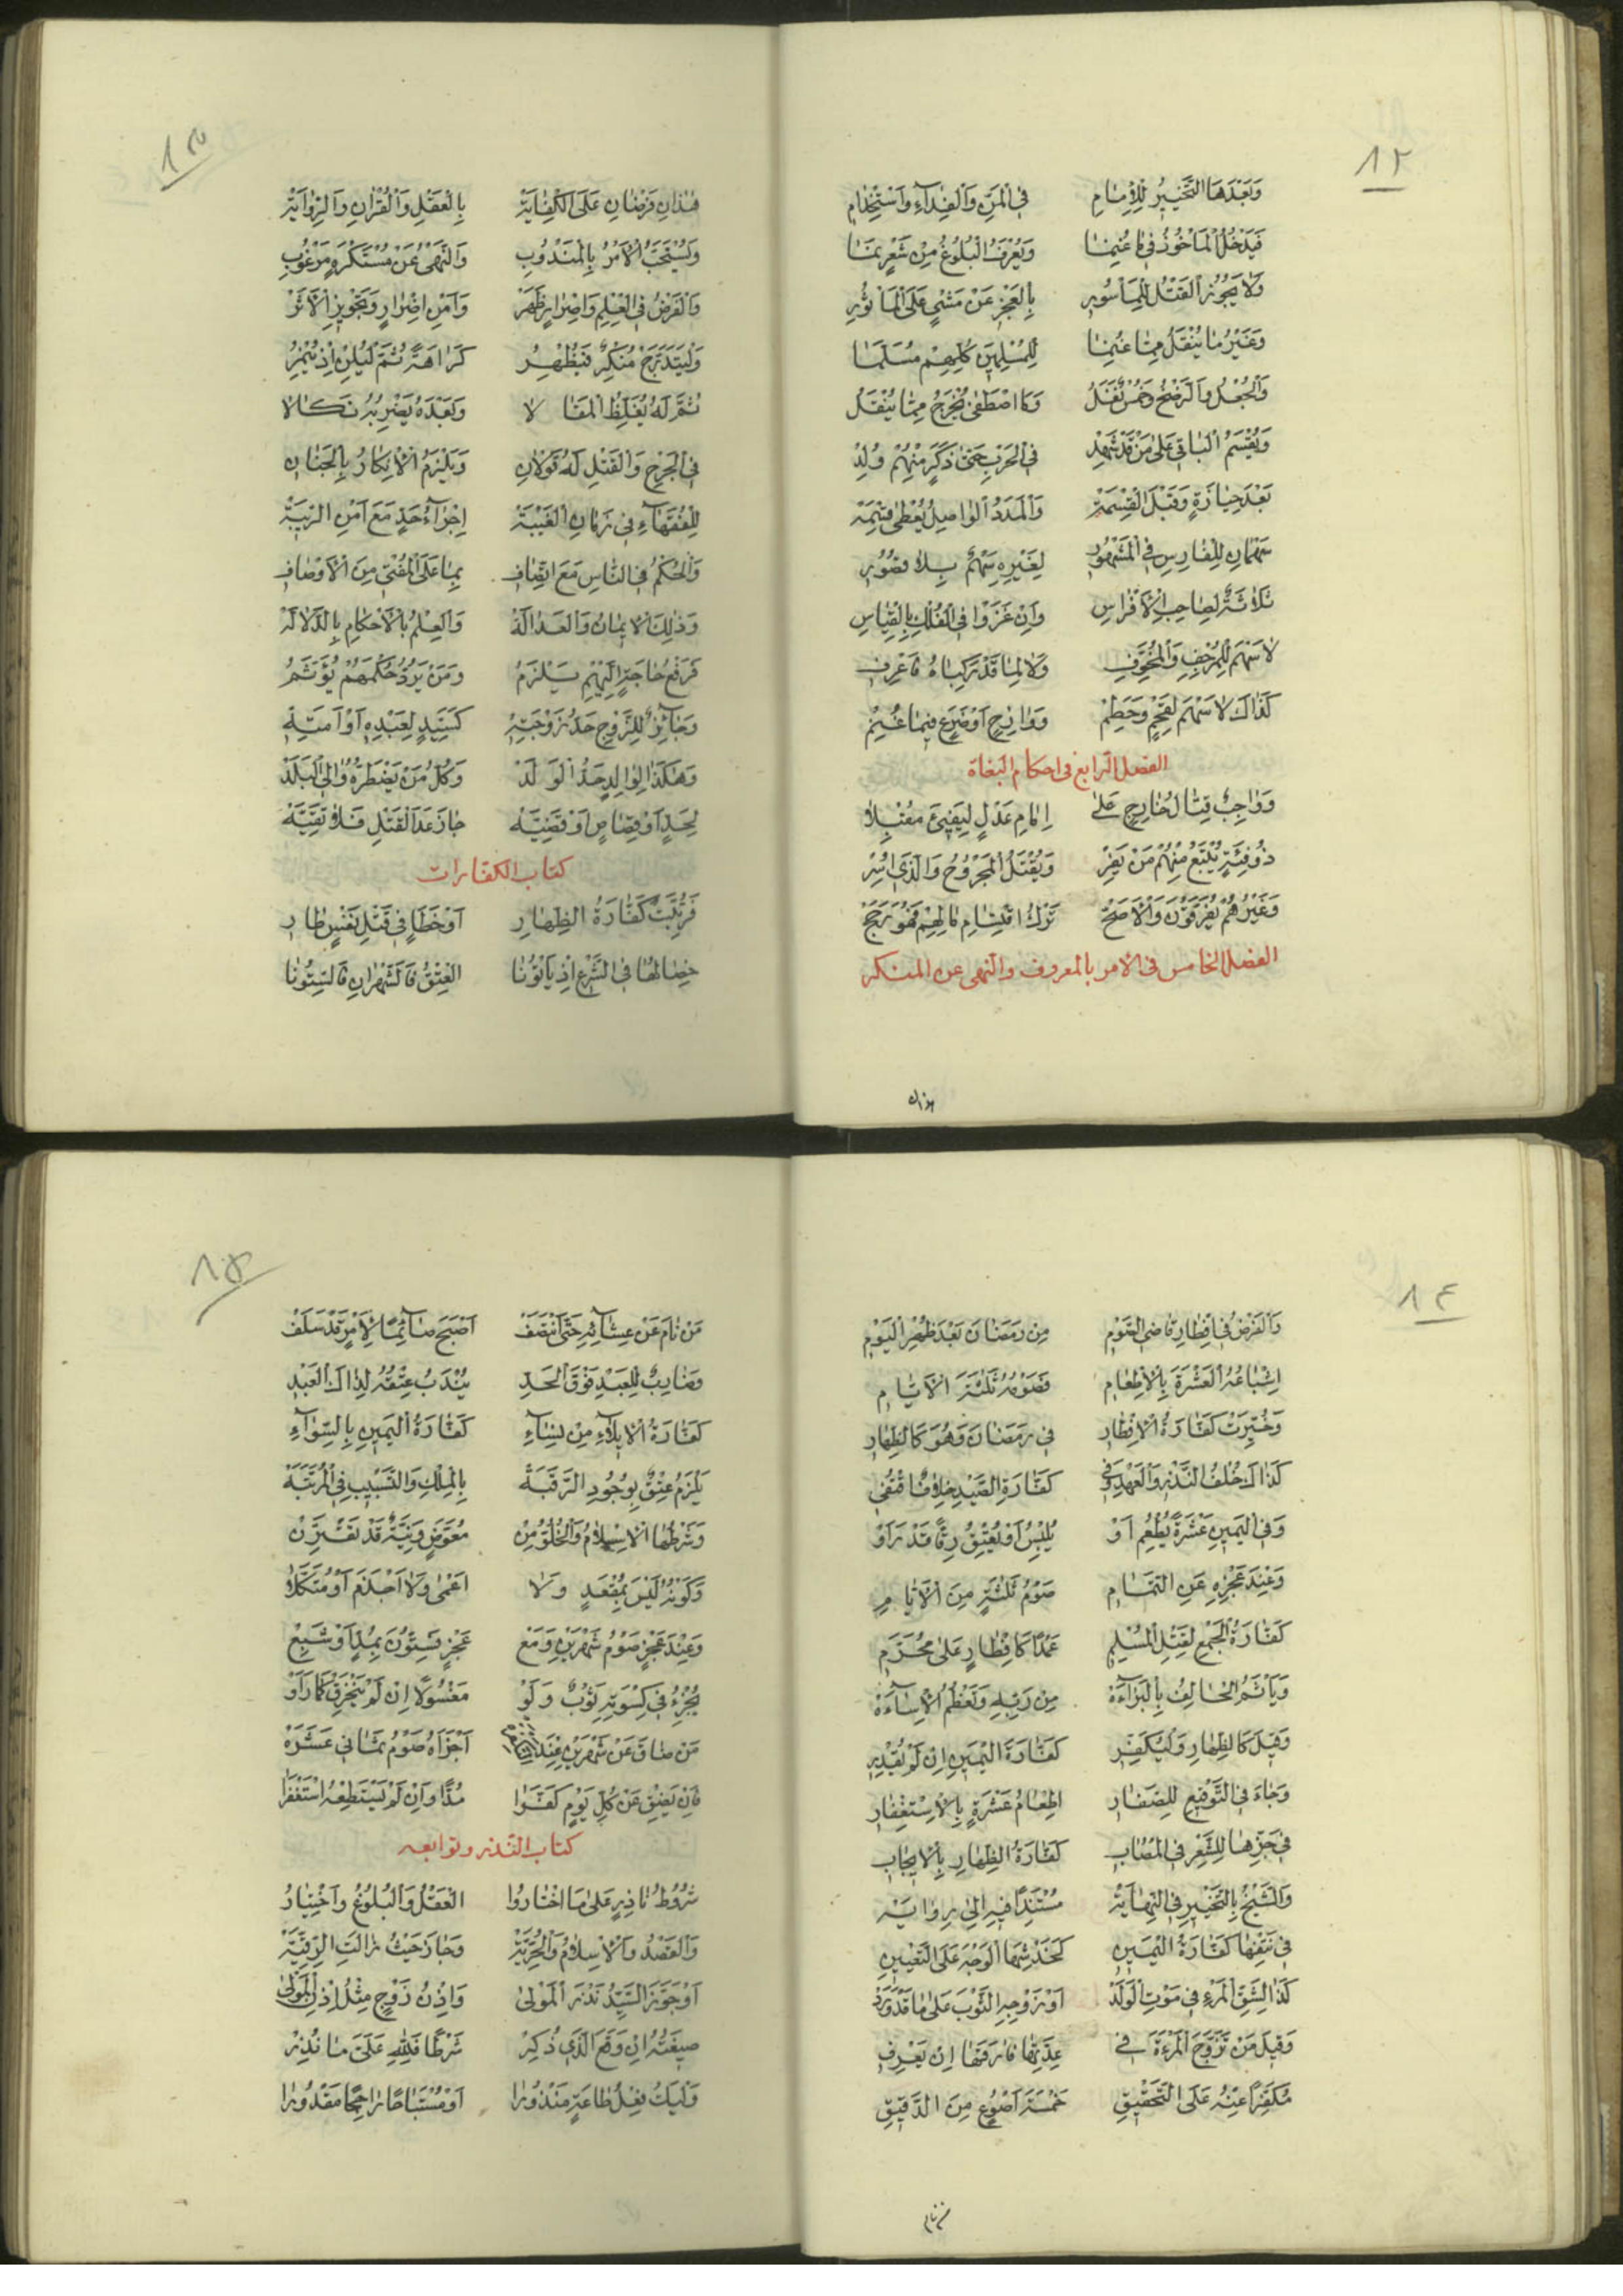 ١٢
وَبَعْدَهَا التَّخْيِيرُ لِلْإِمَامِ فِي الْمَنِّ وَالْفِدَاءِ وَاسْتِخْدَامِ
فَيَدْخُلُ الْمَأْخُوذُ فِي مَا غُنِمَا وَيُعْرَفُ الْبُلُوغُ مِنْ شَعْرٍ نَمَا
وَلَا يَجُوزُ الْقَتْلُ لِلْمَأْسُورِ بِالْعَجْزِ عَنْ مَشْيٍ عَلَى الْمَأْثُورِ
وَغَيْرُ مَا يُنْقَلُ مِمَّا غُنِمَا لِلْمُسْلِمِينَ كُلِّهِمْ مُسَلَّمَا
وَالْجُعْلُ وَالرَّضْخُ وَخُمْسٌ نَفَلُ وَمَا اصْطَفَى يُخْرَجُ مِمَّا يُنْقَلُ
وَيُقْسَمُ الْبَاقِي عَلَى مَنْ قَدْ شَهِدْ فِي الْحَرْبِ حَتَّى ذَكَرٍ مِنْهُمْ وُلِدْ
بَعْدَ حِيَازَةٍ وَقَبْلَ الْقِسْمَةِ وَالْمَدَدُ الْوَاصِلُ يُعْطَى
سَهْمَانِ لِلْفَارِسِ فِي الْمَشْهُورِ لِغَيْرِهِ سَهْمٌ بِلَا قُصُورِ
ثَلَاثَةٌ لِصَاحِبِ الْأَفْرَاسِ وَإِنْ غَزَوْا فِي الْفُلْكِ بِالْقِيَاسِ
لَا سَهْمَ لِلْمُرْجِفِ وَالْمُخَوِّفِ وَلَا لِمَا قَدْ رَكِبَاهُ فَاعْرِفِ
كَذَاكَ لَا سَهْمَ لِقَحْمٍ وَحَطِمْ وَرَازِحٍ أَوْ ضَرَعٍ فِيمَا غُنِمْ
الفصل الرابع في احكام البغاة
وَوَاجِبٌ قِتَالُ خَارِجٍ عَلَى إِمَامِ عَدْلٍ لِيَفِيءَ مُقْبِلَا
ذُو فِئَةٍ يُتْبَعُ مِنْهُمْ مَنْ يَفِرْ وَيُقْتَلُ الْمَجْرُوحُ وَالَّذِي أُسِرْ
وَغَيْرُهُمْ يُفَرَّقُونَ وَالْأَصَحْ تَرْكُ اقْتِسَامِ مَالِهِمْ فَهُوَ رَجَحْ
الفصل الخامس في الامر بالمعروف والنهي عن المنكر
هذان
١٣
هٰذَانِ فَرْضَانِ عَلَى الْكِفَايَةْ بِالْعَقْلِ وَالْقُرْآنِ وَالرِّوَايَةْ
وَيُسْتَحَبُّ الْأَمْرُ بِالْمَنْدُوبِ وَالنَّهْيُ عَنْ مُسْتَكْرَهٍ مَرْغُوبِ
وَالْفَرْضُ فِي الْعِلْمِ وَإِصْرَارٍ ظَهَرْ وَأَمْنِ إِضْرَارٍ وَتَجْوِيزِ الْأَثَرْ
وَلْيَتَدَرَّجْ مُنْكِرٌ فَيُظْهِرُ كَرَاهَةً ثُمَّ لْيُلِنْ إِذْ يُنْمِرُ
ثُمَّ لَهُ يُغَلِّظُ الْمَقَالَا وَبَعْدَهُ يَضْرِبُهُ نَكَالَا
فِي الْجَرْحِ وَالْقَتْلِ لَهُ قَوْلَانِ وَيَلْزَمُ الْإِنْكَارُ بِالْجَنَانِ
لِلْفُقَهَاءِ فِي زَمَانِ الْغَيْبَةْ إِجْرَاءُ حَدٍّ مَعَ أَمْنِ الرِّيبَةْ
وَالْحُكْمُ فِي النَّاسِ مَعَ اتِّصَافِ بِمَا عَلَى الْمُفْتِي مِنَ الْأَوْصَافِ
وَذٰلِكَ الْإِيمَانُ وَالْعَدَالَةْ وَالْعِلْمُ بِالْأَحْكَامِ بِالدَّلَالَةْ
فَرَفْعُ حَاجَةٍ إِلَيْهِمْ يَلْزَمُ وَمَنْ يَرُدُّ حُكْمَهُمْ يُؤَثَّمُ
وَجَائِزٌ لِلزَّوْجِ حَدُّ زَوْجَتِهْ كَسَيِّدٍ لِعَبْدِهِ أَوْ أَمَتِهْ
وَهٰكَذَا لِوَالِدٍ حَدُّ الْوَلَدْ وَكُلُّ مَنْ يَضْطَرُّهُ وَالِي الْبَلَدْ
لِحَدٍّ أَوْ قِصَاصٍ أَوْ قَضِيَّةْ جَازَ عَدَا الْقَتْلِ فَلَا تَقِيَّةْ
كتاب الكفارات
فَرُتِّبَتْ كَفَّارَةُ الظِّهَارِ أَوْ خَطَإٍ فِي قَتْلِ نَفْسٍ طَارِ
خِصَالُهَا فِي الشَّرْعِ إِذْ يَأْتُونَا الْعِتْقُ فَالشَّهْرَانِ فَالسِّتُّونَا
١٤
وَالْفَرْضُ فِي إِفْطَارِ قَاضِي الصَّوْمِ مِنْ رَمَضَانَ بَعْدَ ظُهْرِ الْيَوْمِ
إِشْبَاعُهُ الْعَشَرَةَ بِالْإِطْعَامِ فَصَوْمُهُ ثَلَاثَةَ الْأَيَّامِ
وَخُيِّرَتْ كَفَّارَةُ الْإِفْطَارِ فِي رَمَضَانَ وَهُوَ كَالظِّهَارِ
كَذَاكَ خُلْفُ النَّذْرِ وَالْعَهْدِ وَفِي كَفَّارَةِ الصَّيْدِ خِلَافٌ اقْتُفِي
وَفِي الْيَمِينِ عَشْرَةً يُطْعِمُ أَوْ يُلْبِسُ أَوْ يُعْتِقُ رِقًّا قَدْ رَأَوْ
وَعِنْدَ عَجْزِهِ عَنِ التَّمَامِ صَوْمُ ثَلَاثَةٍ مِنَ الْأَيَّامِ
كَفَّارَةُ الْجَمْعِ لِقَتْلِ الْمُسْلِمِ عَمْدًا كَإِفْطَارٍ عَلَى مُحَرَّمِ
وَيَأْثَمُ الْحَالِفُ بِالْبَرَاءَةْ مِنْ رَبِّهِ وَتَعْظُمُ الْإِسَاءَةْ
وَقِيلَ كَالظِّهَارِ وَلْيُكَفِّرِ كَفَّارَةَ الْيَمِينِ إِنْ لَمْ يَقْدِرِ
وَجَاءَ فِي التَّوْقِيعِ لِلصَّفَّارِ إِطْعَامُ عَشْرَةٍ بِالْاِسْتِغْفَارِ
فِي جَزِّهَا لِلشَّعْرِ فِي الْمُصَابِ كَفَّارَةُ الظِّهَارِ بِالْإِيجَابِ
وَالشَّيْخُ بِالتَّخْيِيرِ فِي النِّهَايَةْ مُسْتَنِدًا فِيهِ إِلَى رِوَايَةْ
فِي نَتْفِهَا كَفَّارَةُ الْيَمِينِ كَخَدْشِهَا الْوَجْهَ عَلَى التَّعْيِينِ
كَذَا لِشَقِّ الْمَرْءِ فِي مَوْتِ الْوَلَدْ أَوْ زَوْجِهِ الثَّوْبَ عَلَى مَا قَدْ وَرَدْ
وَقِيلَ مَنْ تَزَوَّجَ الْمَرْءَةَ فِي عِدَّتِهَا فَارَقَهَا إِنْ يَعْرِفِ
مُكَفِّرًا عَنْهُ عَلَى التَّحْقِيقِ خَمْسَةَ أَصْوُعٍ مِنَ الدَّقِيقِ
من نام
١٥
مَنْ نَامَ عَنْ عِشَائِهِ حَتَّى انْتَصَفْ أَصْبَحَ صَائِمًا لِأَمْرٍ قَدْ سَلَفْ
وَضَارِبٌ لِلْعَبْدِ فَوْقَ الْحَدِّ يُنْدَبُ عِتْقُهُ لِذَاكَ الْعَبْدِ
كَفَّارَةُ الْإِيلَاءِ مِنْ نِسَاءِ كَفَّارَةُ الْيَمِينِ بِالسَّوَاءِ
يَلْزَمُ عِتْقٌ بِوُجُودِ الرَّقَبَةْ بِالْمِلْكِ وَالتَّسْبِيبِ فِي الْمُرَتَّبَةْ
وَشَرْطُهَا الْإِسْلَامُ وَالْخُلُوُّ مِنْ مُعَوِّضٍ وَنِيَّةٌ قَدْ تَقْتَرِنْ
وَكَوْنُهُ لَيْسَ بِمُقْعَدٍ وَلَا أَعْمَى وَلَا أَجْذَمَ أَوْ مُنَكَّلَا
وَعِنْدَ عَجْزٍ صَوْمُ شَهْرَيْنِ وَمَعْ عَجْزٍ فَسِتُّونَ بِمُدٍّ أَوْ شِبَعْ
يُجْزِئُ فِي كِسْوَتِهِ ثَوْبٌ وَلَوْ مَغْسُولًا إِنْ لَمْ يَنْخَرِقْ كَمَا رَأَوْ
مَنْ ضَاقَ عَنْ شَهْرَيْنِ عِنْدَ أَجْزَاهُ صَوْمُ ثَمَانِي عَشْرَةْ
فَإِنْ يَضِقْ عَنْ كُلِّ يَوْمٍ كَفَّرَا مُدًّا وَإِنْ لَمْ يَسْتَطِعْهُ اسْتَغْفَرَا
كتاب النذر وتوابعه
شُرُوطُ نَاذِرٍ عَلَى مَا اخْتَارُوا الْعَقْلُ وَالْبُلُوغُ وَاخْتِيَارُ
وَالْقَصْدُ وَالْإِسْلَامُ وَالْحُرِّيَّةْ وَجَازَ حَيْثُ زَالَتِ الرِّقِّيَّةْ
أَوْ جَوَّزَ السَّيِّدُ نَذْرَ الْمَوْلَى وَإِذْنُ زَوْجٍ مِثْلُ إِذْنِ الْمَوْلَى
صِيغَتُهُ إِنْ وَقَعَ الَّذِي ذُكِرْ شَرْطًا فَلِلّٰهِ عَلَيَّ مَا نُذِرْ
وَلْيَكُ فِعْلُ طَاعَةٍ مَنْذُورَا أَوْ مُسْتَبَاحًا رَاجِحًا مَقْدُورَا